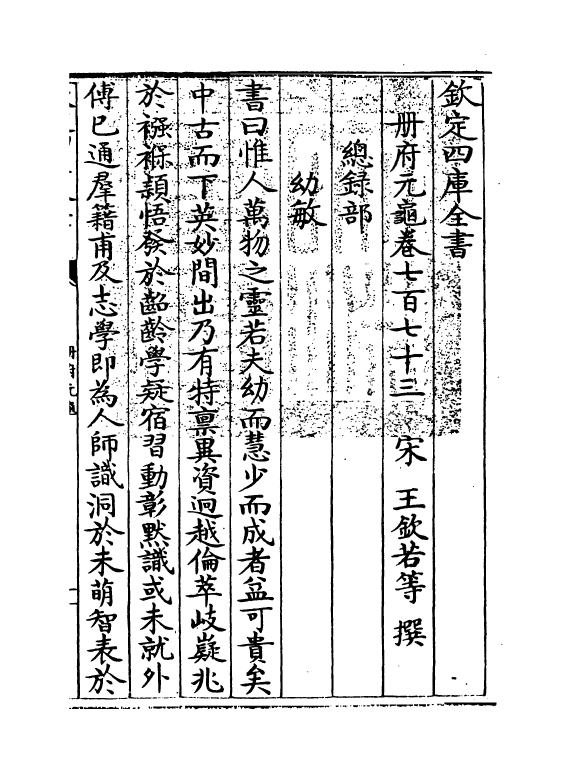 欽定四庫全書
册府元龜卷七百七十三 宋 王欽若等 撰
總録部
幼敏
書曰惟人萬物之靈若夫幼而慧少而成者盆可貴矣
中古而下英妙間出乃有特禀異資迥越倫萃岐嶷兆
於襁褓頴悟發於齠齡學疑宿習動彰默識或未就外
傅巳通羣籍甫及志學即為人師識洞於未萌智表於